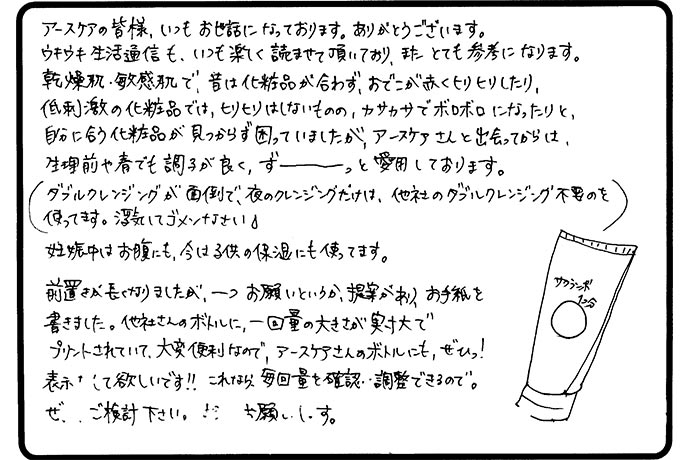 アースケアの皆様、いつもお世話になっております。ありがとうございます。
ウキウキ生活通信も、いつも楽しく読ませて頂いており、またとても参考になります。
乾燥肌・敏感肌で、昔は化粧品が合わず、おでこが赤くヒリヒリしたり、
低刺激の化粧品では、ヒリヒリはしないものの、カサカサでボロボロになったりと、
自分に合う化粧品が見つからず困っていましたが、アースケアさんと出会ってからは、
生理前や春でも調子が良く、ず———っと愛用しております。
(ダブルクレンジングが面倒で、夜のクレンジングだけは、他社のダブルクレンジング不要のを
使ってます。浮気してゴメンなさい♪)
妊娠中はお腹にも、今は子供の保湿にも使ってます。
前置きが長くなりましたが、一つお願いというか、提案があり、お手紙を
書きました。他社さんのボトルに、一回量の大きさが実寸大で
プリントされていて、大変便利なので、アースケアさんのボトルにも、ぜひっ!
表示 して欲しいです!! これなら毎回量を確認 調整できるので。
ぜ ご検討下さい。 お願いし す。
サクランボ
1コ分